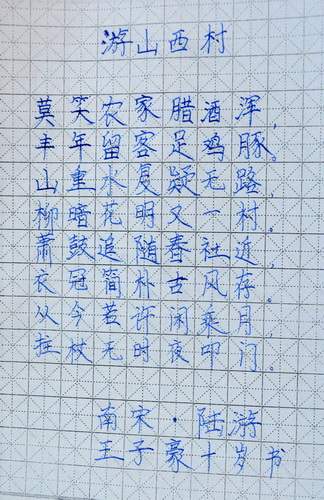 游山西村
莫笑农家腊酒浑，
丰年留客足鸡豚。
山重水复疑无路，
柳暗花明又一村。
萧鼓追随春社近，
衣冠简朴古风存。
从今若许闲乘月，
拄杖无时夜叩门。
南宋·陆游
王子豪十岁书